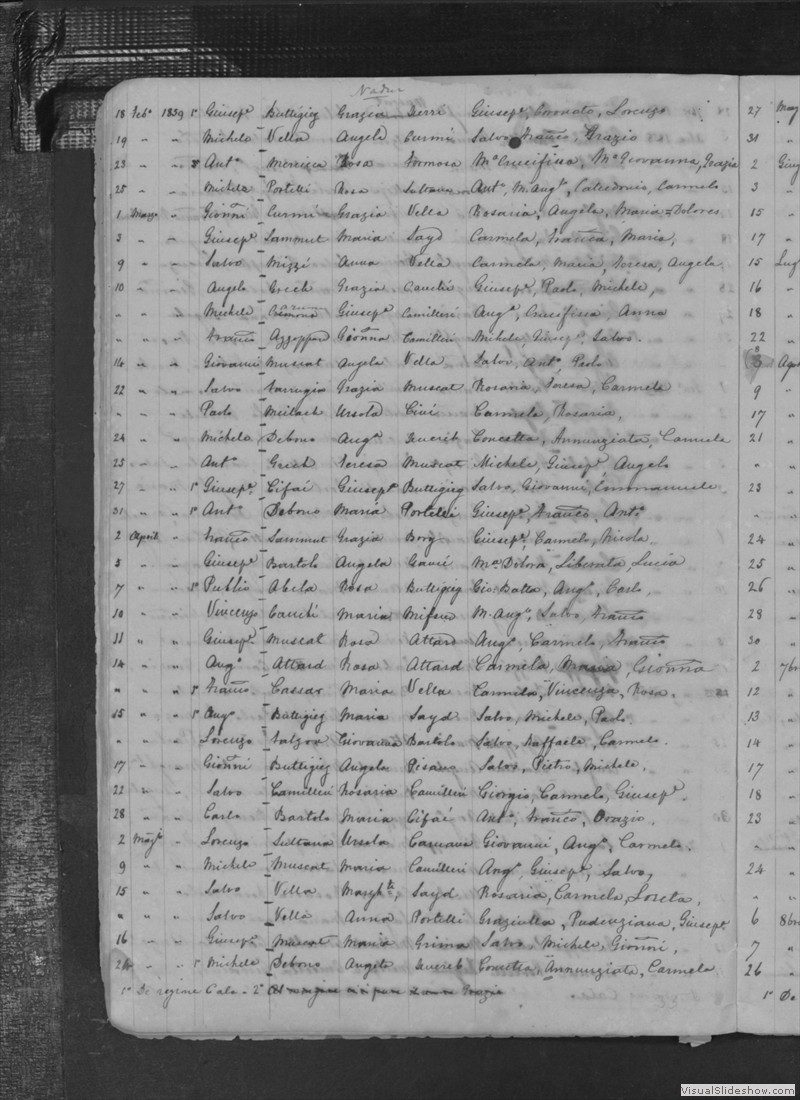 Nadur
18 Feb. 1859 1° Giusep.e Buttigieg Grazia Giusep.e, Coronato, Lorenzo 27 May
19 " " Michele Vella Angela Curmi Salvo, Franco, Grazio 31 "
23 " " Ant.o Mercieca Rosa Formosa M.a Crucifissa, M.a Giovanna, Grazia 2 Giug
25 " " Michele Portelli Rosa Sultana Ant.o, M. Aug.a, Calcedonio, Carmelo 3 "
1 Marzo " Gionni Curmi Grazia Vella Rosaria, Angela, Maria Dolores 15 "
3 " " Giusep.e Sammut Maria Sayd Carmela, Franca, Maria, 17 "
9 " " Salvo Mizzi Anna Vella Carmela, Maria, Teresa, Angela. 15 Lug
10 " " Angelo Grech Grazia Cauchi Giusep.e, Paolo, Michele, 16 "
" " " Michele Giusep.a Camilleri Aug.o, Crucifissa, Anna 18 "
" " " Franco Azzoppardi Gionna Camilleri Michele, Giusep.e, Salvo. 22 "
14 " " Giovanni Muscat Angela Vella Salvo, Ant.o, Paolo 8 Agos
22 " " Salvo Farrugia Grazia Muscat Rosaria, Teresa, Carmela 9 "
" " " Paolo Meilach Ursola Civi Carmela, Rosaria, 17 "
24 " " Michele Debono Ang.a Concetta, Annunziata, Carmela 21 "
25 " " Ant.o Grech Teresa Muscat Michele, Giusep.e, Angelo " "
27 " " 1° Giusep.e Cifai Giusep.a Buttigieg Salvo, Giovanni, Emmanuele. 23 "
31 " " 1° Ant.o Debono Maria Portelli Giusep.e, Franco, Ant.o " "
2 April " Franco Sammut Grazia Borg Giusep.e, Carmelo, Nicola. 24 "
5 " Giusep.e Bartolo Angela Gauci Liberata, Lucia 25 "
7 " " 1° Publio Abela Rosa Buttigieg Gio Batta, Ang.o, Carlo, 26 "
10 " " Vincenzo Cauchi Maria Mifsud M. Aug.o, Salvo, Franco 28 "
11 " " Giusep.e Muscat Rosa Attard Ang.o, Carmelo, Franco 30 "
14 " " Aug.o Attard Rosa Attard Carmela, Maria, Gionna 2 7br
" " " Franco Cassar Maria Vella Carmela, Vincenza, Rosa. 12 "
15 " " 1° Aug.o Buttigieg Maria Sayd Salvo, Michele, Paolo. 13 "
" " " Lorenzo Falzon Giovanna Bartolo Salvo, Raffaele, Carmelo. 14 "
17 " " Gionni Buttigieg Angela Pisano Salvo, Pietro, Michele. 17 "
22 " " Salvo Camilleri Rosaria Camilleri Giorgio, Carmelo, Giusep.e 18 "
28 " " Carlo Bartolo Maria Cifai Ant.o, Franco, Orazio. 23 "
2 Mag.o " Lorenzo Sultana Ursola Giovanni, Ang.o, Carmelo. " "
9 " " Michele Muscat Maria Camilleri Ang.o, Giusep.e, Salvo, 24 "
15 " " Salvo Vella Margh.ta, Sayd Rosaria, Carmela, Loreta, " "
" " " Salvo Vella Anna Portelli Graziella, Pudenziana, Giusep.a 6 8br
16 " " Giusep.e Muscat Maria Grima Salvo, Michele, Gionni, 7 "
24 " " 1° Michele Debono Angela Concetta, Annunziata, Carmela 26 "
1° De regione Cala - 2° 1° De
VisualSlideshow.com